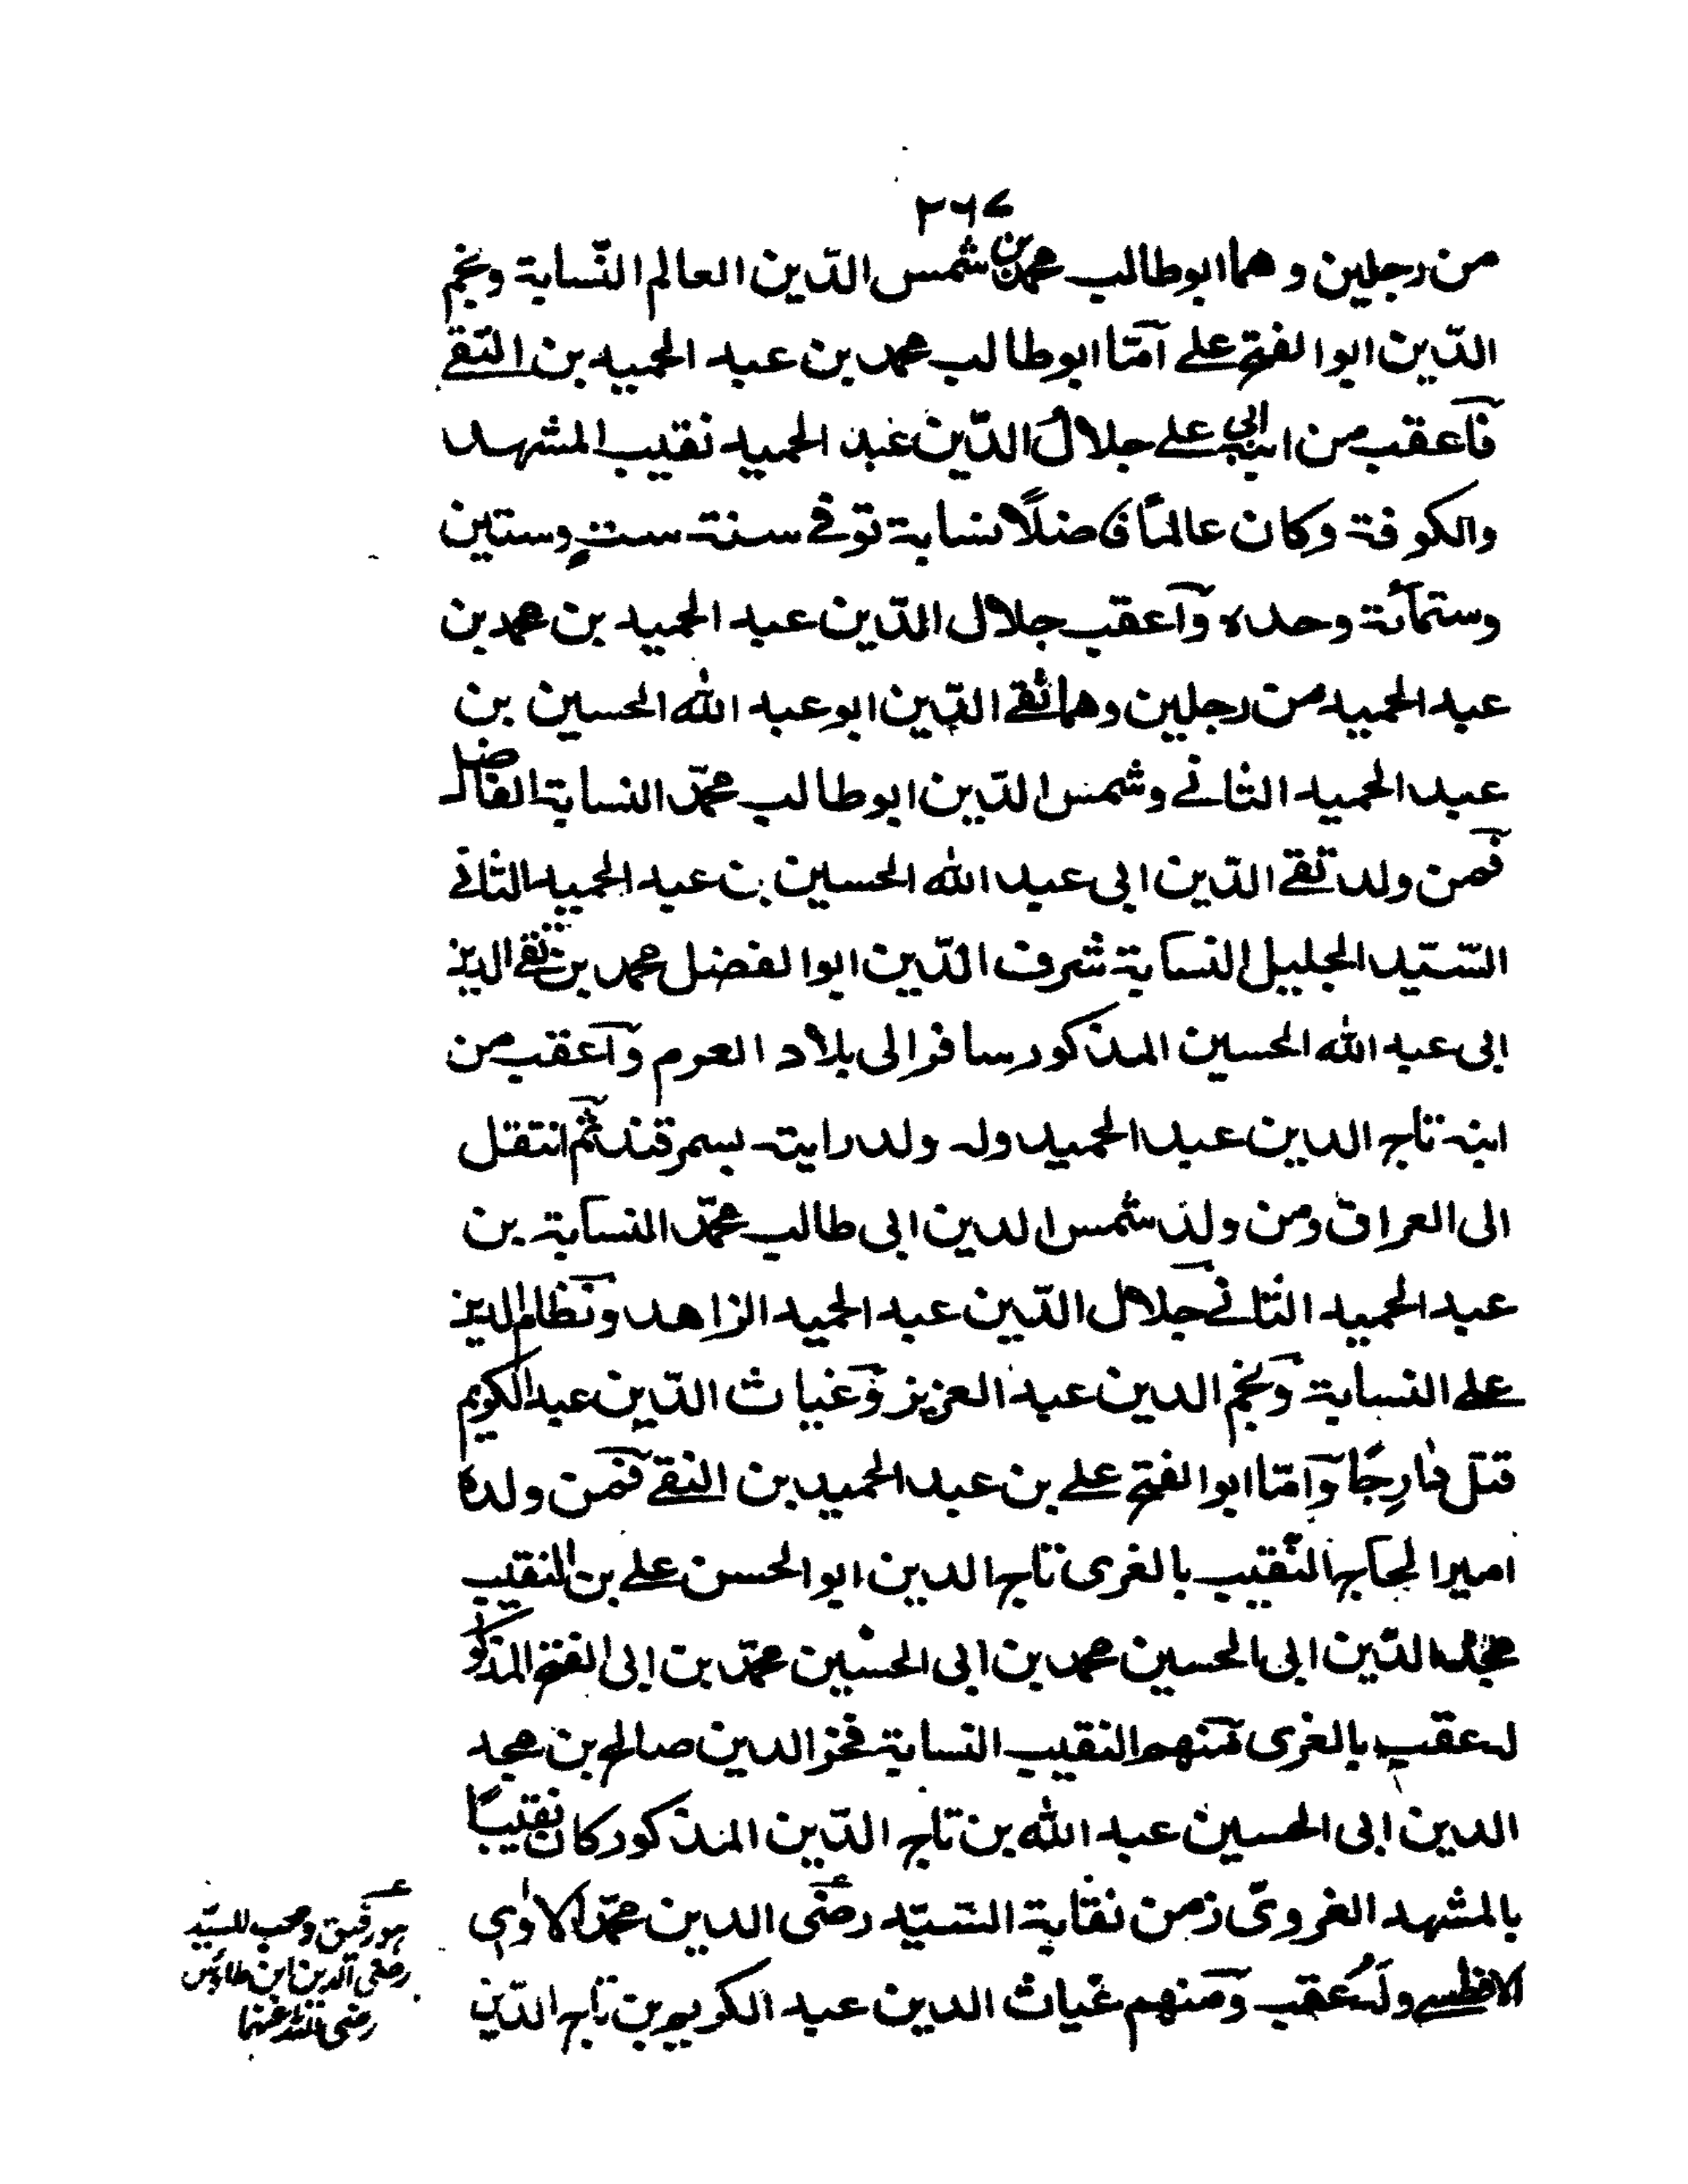 ٢٦٧
من رجلين وهما ابو طالب محمد بن شمس الدّين العالم النّسابة ونجم
الدّين ابوا لفتح علے آمّا ابو طالب محمد بن عبد الحميد بن التقے
فآعقب من ابنه ابى علے جلال الدّين عبد الحميد نقيب المشهد
والكوفة وكان عالمًا فاضلًا نسابة توفے سنة ستٍ وستين
وستمآئة وحده وآعقب جلال الدّين عبد الحميد بن محمد بن
عبد الحميد من رجلين وهما تقے الدّين ابو عبد الله الحسين بن
عبد الحميد الثانے وشمس الدّين ابو طالب محمّد النسابة الفاضل
فمن ولد تقے الدّين ابى عبد الله الحسين بن عبد الحميد الثانے
السّيّد الجليل النسابة شرف الدّين ابوا لفضل محمد بن تقے الدين
ابى عبد الله الحسين المذكور سافر الى بلاد العرم وآعقب من
ابنه تاج الدين عبد الحميد وله ولد رايته بسمرقند ثم انتقل
الى العراق ومن ولد شمس الدين ابى طالب محمّد النسابة بن
عبد الحميد الثانے جلال الدّين عبد الحميد الزاهد ونظام الدين
علے النسابة ونجم الدين عبد العزيز وغياث الدّين عبد الكريم
قتل دارجًا وآمّا ابوا لفتح علے بن عبد الحميد بن التقے فمن ولده
امير الحاج النّقيب بالغرى تاج الدين ابو الحسن علے بن النقيب
مجد الدّين ابى الحسين محمد بن ابى الحسين محمّد بن ابى الفتح المذكو
له عقب بالغرى منهم النقيب النسابة فخر الدين صالح بن مجد
الدين ابى الحسين عبد الله بن تاج الدّين المذكور كان نقيبًا
بالمشهد الغروىّ زمن نقابة السّيّد رضى الدين محمّد الاوى
الافطسے وله عقب ومنهم غياث الدين عبد الكريم بن تاج الدّين
هو رفيق ومحب للسيّد
رضى الدين ابن طاؤس
رضى الله عنهما